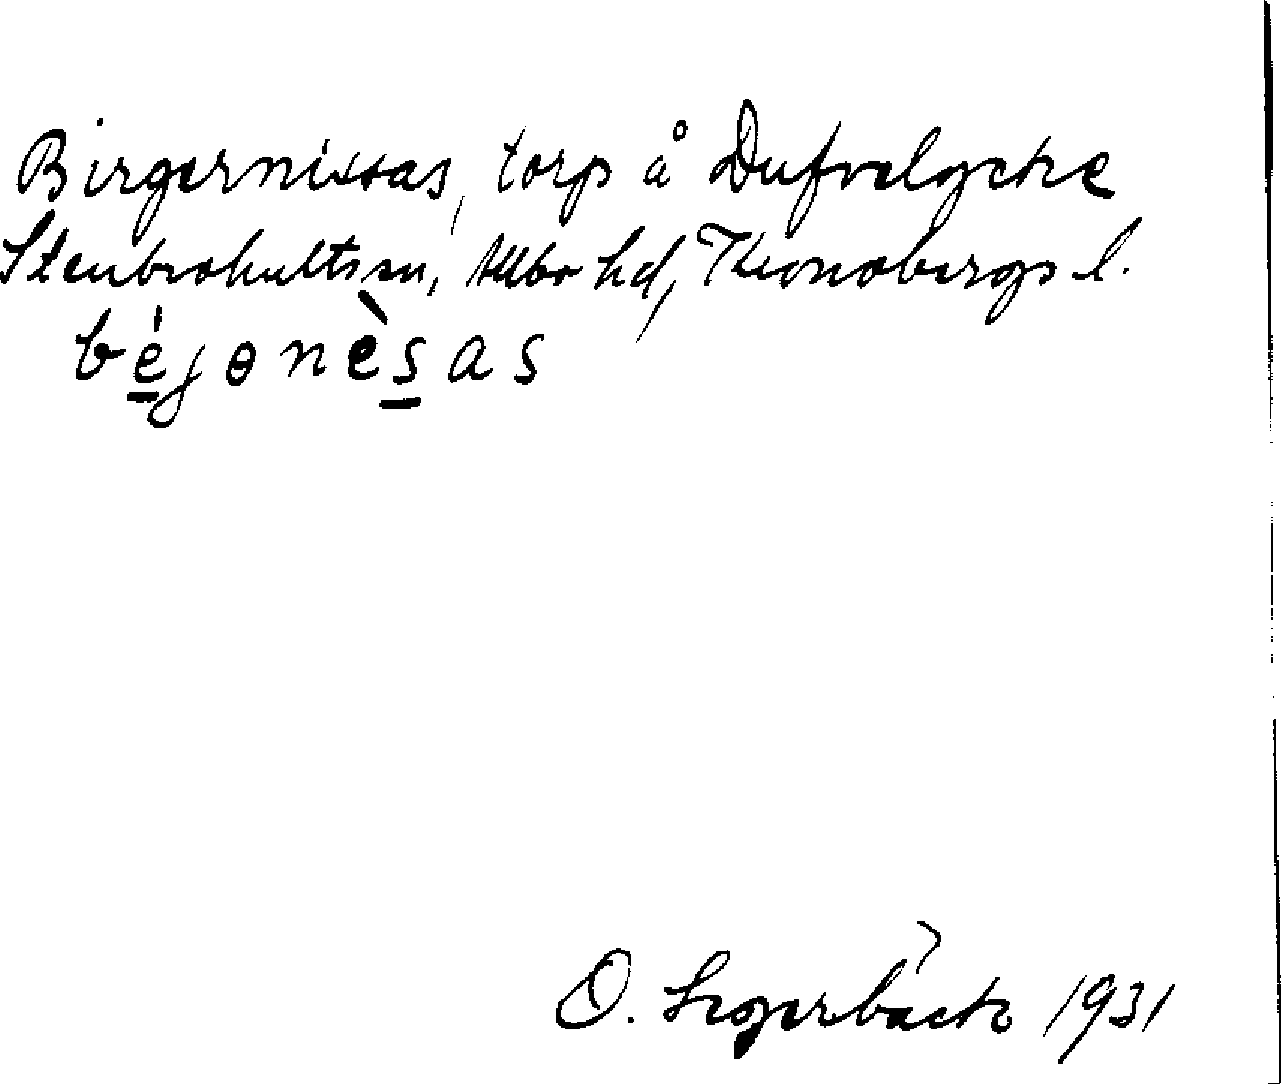 Birgernissas, torp å Dufvelycke
Stenbrohults sn, Allbo hd, Kronobergs l.
béjɵnèsas
O. Segerbäck 1931